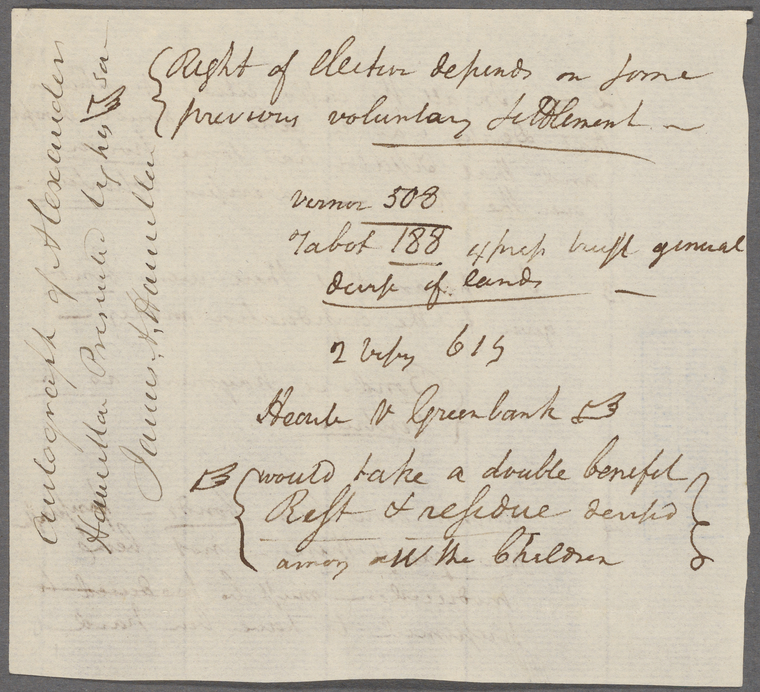 Right of Election depends on some
previous voluntary Settlement —
Vernon 508
Talbot 188 general
devise of lands —
2 Vesey 615
Hearle v Greenbank
would take a double benefit
Rest & residue devised
among all the Children
Autograph of Alexander
Hamilton Presented by his son
James A. Hamilton